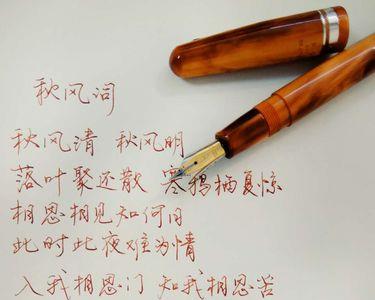 秋风词
秋风清 秋风明
落叶聚还散 寒鸦栖复惊
相思相见知何日
此时此夜难为情
入我相思门 知我相思苦